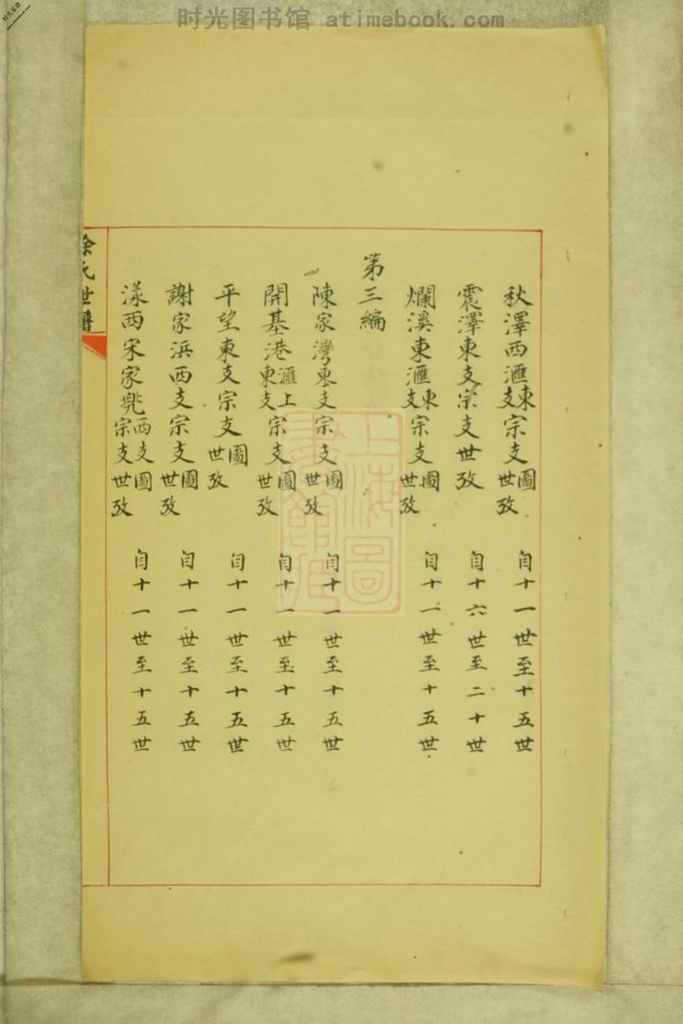 时光图书馆 atimebook.com
秋澤西滙東支宗支圖世攷 自十一世至十五世
震澤東支宗支世攷 自十六世至二十世
爛溪東滙東支宗支圖世攷 自十一世至十五世
第三編
陳家灣東支宗支圖世攷 自十一世至十五世
開基港滙上東支宗支圖世攷 自十一世至十五世
平望東支宗支圖世攷 自十一世至十五世
謝家浜西支宗支圖世攷 自十一世至十五世
漾西宋家兠西支宗支圖世攷 自十一世至十五世
氏世譜